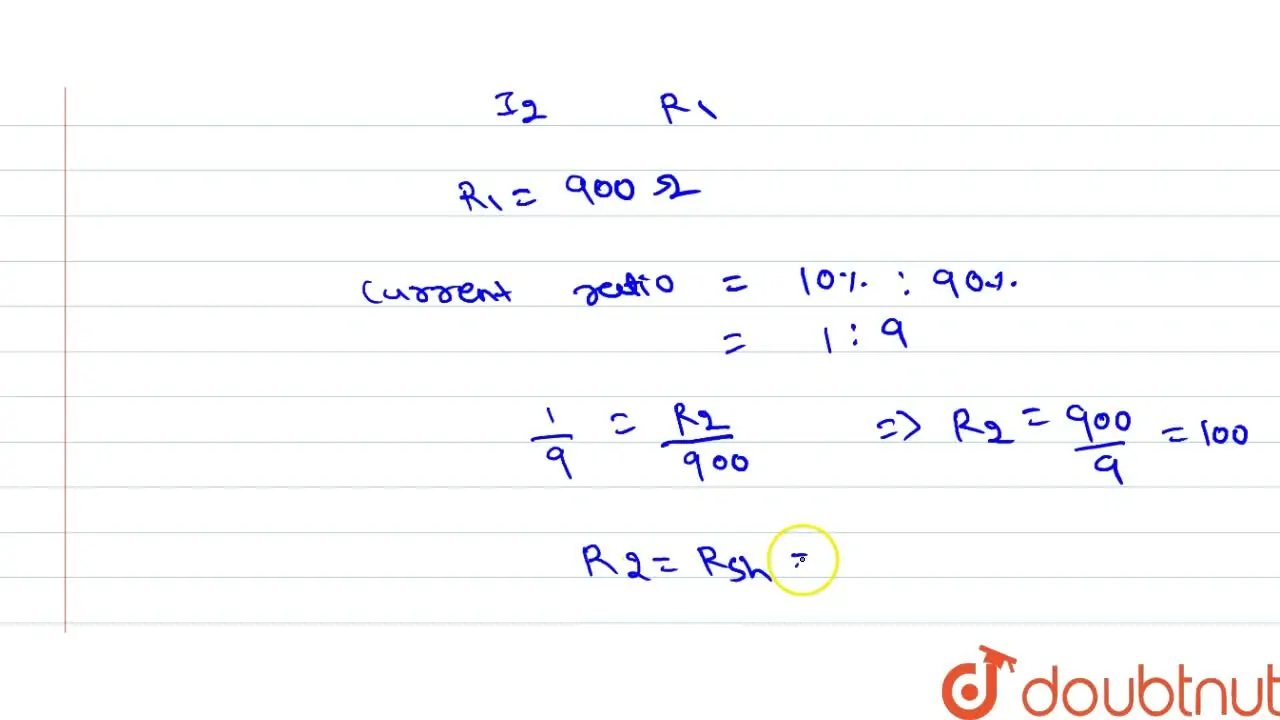 I2 R1
R1 = 900 Ω
Current ratio = 10% : 90%.
= 1 : 9
1/9 = R2/900 => R2 = 900/9 = 100
R2 = Rsh =
doubtnut